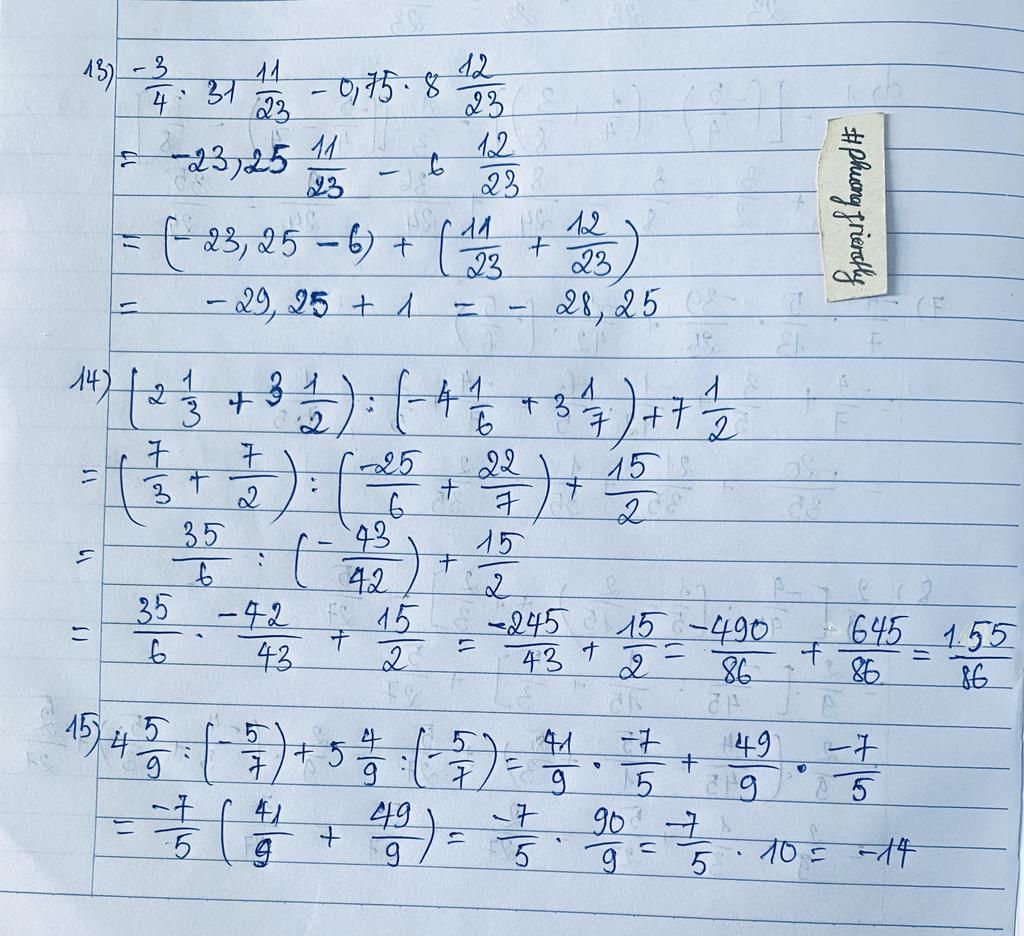 13) -3/4 . 31 11/23 - 0,75 . 8 12/23
= -23,25 11/23 - 6 12/23
= (-23,25 - 6) + (11/23 + 12/23)
= -29,25 + 1 = -28,25
14) (2 1/3 + 3 1/2) : (-4 1/6 + 3 1/7) + 7 1/2
= (7/3 + 7/2) : (-25/6 + 22/7) + 15/2
= 35/6 : (-43/42) + 15/2
= 35/6 . -42/43 + 15/2 = -245/43 + 15/2 = -490/86 + 645/86 = 155/86
15) 4 5/9 : (-5/7) + 5 4/9 : (-5/7) = 41/9 . -7/5 + 49/9 . -7/5
= -7/5 (41/9 + 49/9) = -7/5 . 90/9 = -7/5 . 10 = -14
#phuongfriendly